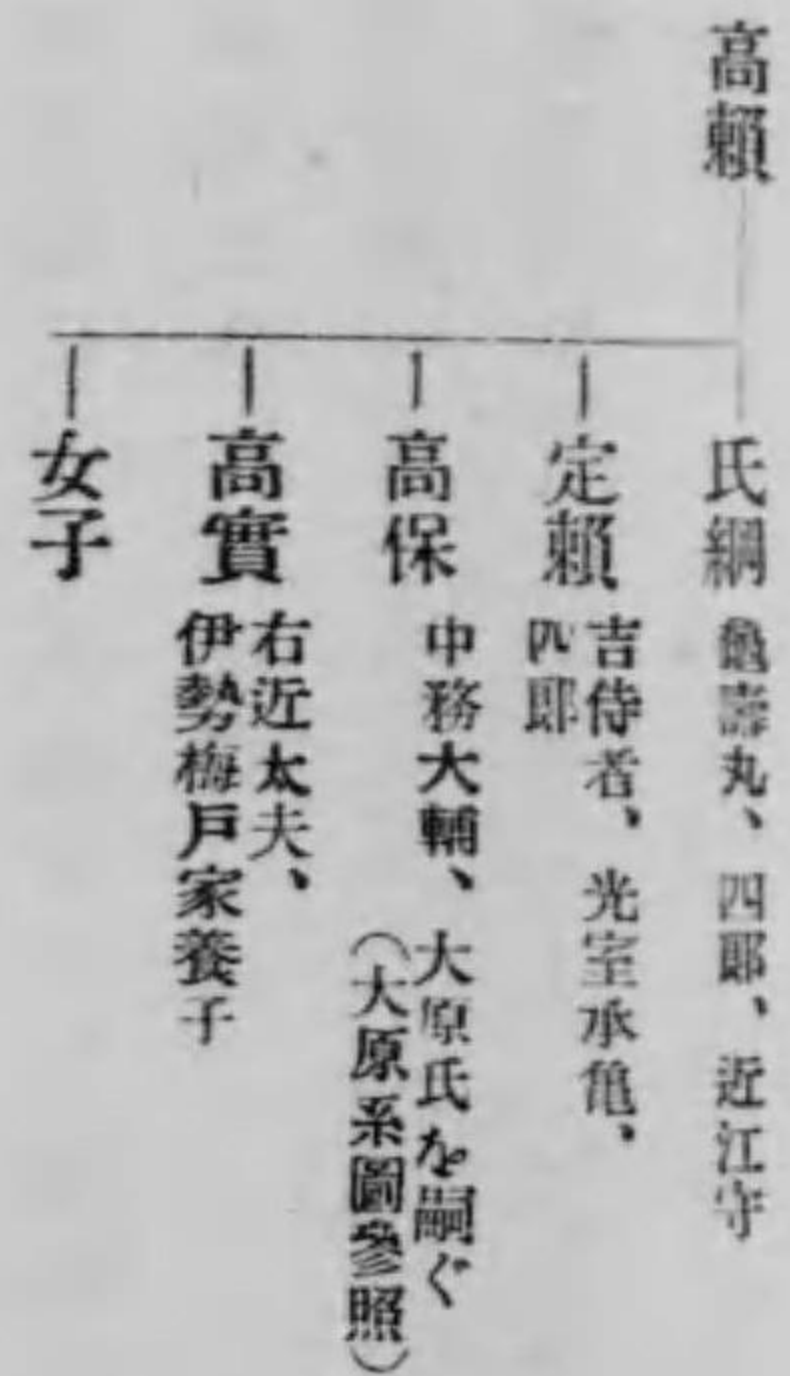 高賴
氏綱
亀壽丸、四郎、近江守
定賴
吉侍者、光室承亀、
四郎
高保
中務大輔、大原氏を嗣ぐ
（大原系圖參照）
高實
右近太夫、
伊勢梅戸家養子
女子